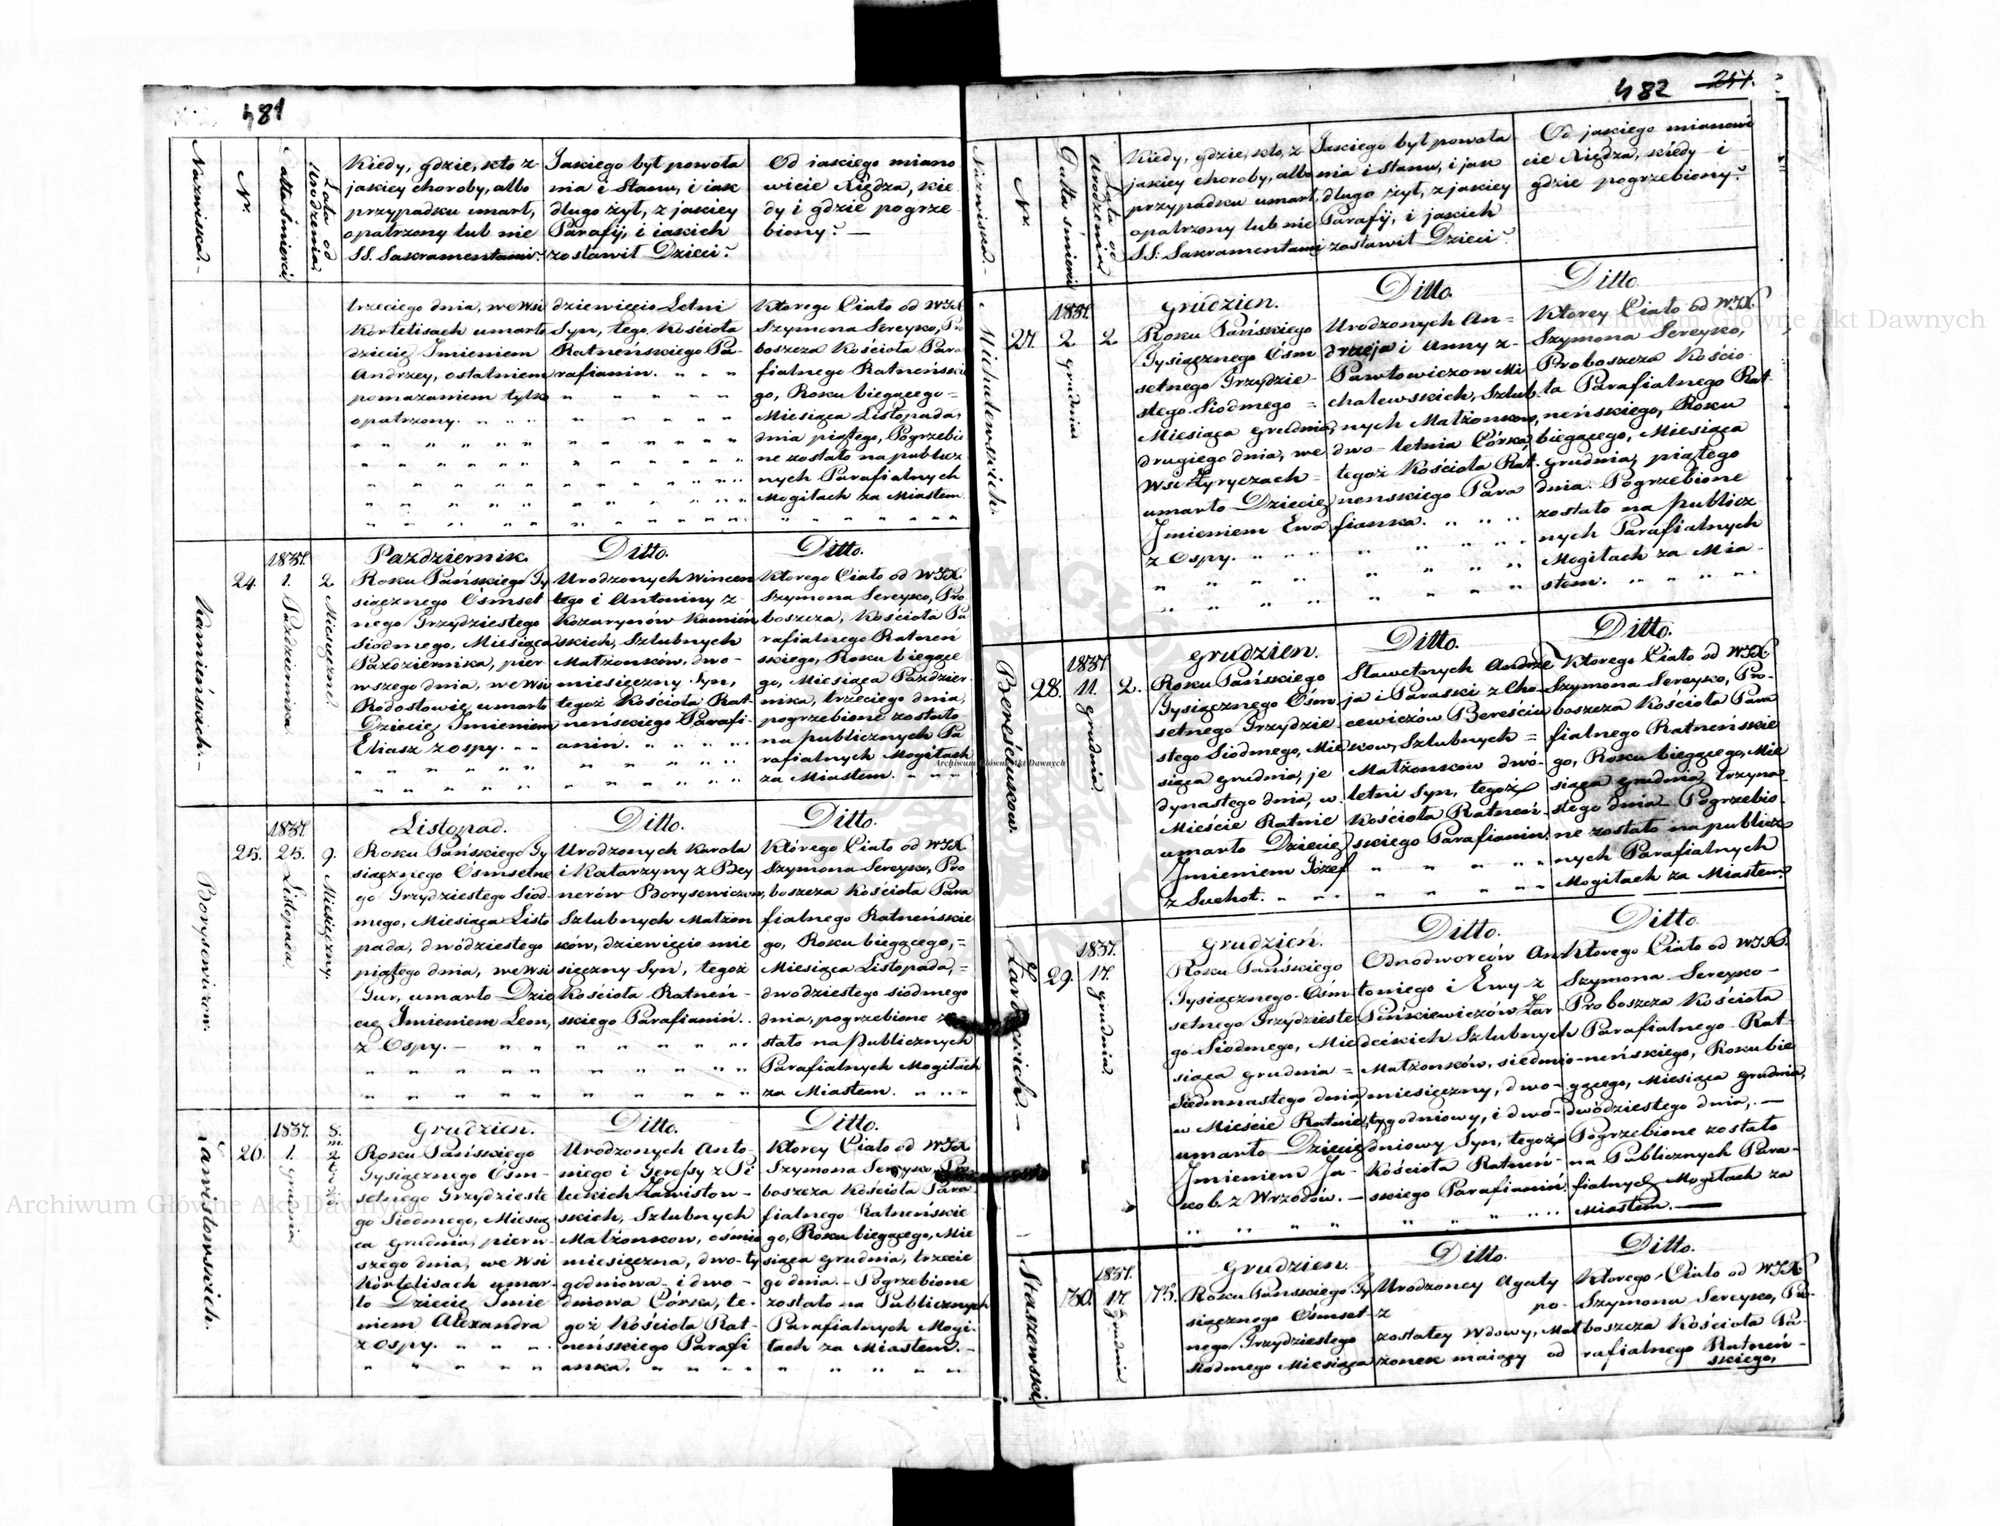 481
Nazwiska
Nr.
Datta śmierci
Lata od Urodzenia
Kiedy, gdzie, kto z
jakiey choroby, albo
przypadku umarł,
opatrzony lub nie
SS. Sakramentami?
Jakiego był powoła
nia i stanu, i iak
długo żył, z jakiey
Parafij, i iakich
zostawił Dzieci?
Od iakiego miano
wicie Xiędza, kie
dy i gdzie pogrze
biony? —
trzeciego dnia, we Wsi
Kortelisach umarło
dziecię Jmieniem
Andrzey, ostatniem
pomazaniem tylko
opatrzony.
dziewięcio Letni
Syn, tego Kościoła
Ratneńskiego Pa-
rafianin.
Ktorego Ciało od WJX.
Szymona Sereyko, Pro
boszcza Kościoła Para
fialnego Ratneńskie
go, Roku biegącego =
Miesiąca Listopada,
dnia piątego, Pogrzebio
ne zostało na publicz
nych Parafialnych
Mogiłach za Miastem.
Kamieńskich.—
24.
1837.
1. Października
2 Miesięczne
Pazdziernik.
Roku Pańskiego Ty
siącznego Osmset
nego Trzydziestego
Siodmego, Miesiąca
Października, pier
wszego dnia, we Wsi
Rodostowie umarło
Dziecię Jmieniem
Eliasz z ospy.
Ditto.
Urodzonych Wincen
tego i Antoniny z
Kozarynów Kamień
skich, Szlubnych
Małżonków, dwo-
miesięczny Syn,
tegoż Kościoła Rat-
neńskiego Parafi-
anin.
Ditto.
Ktorego Ciało od WJX.
Szymona Sereyko, Pro
boszcza, Kościoła Pa
rafialnego Ratneń
skiego, Roku biegące
go, Miesiąca Paździer
nika, trzeciego dnia,
pogrzebione zostało
na publicznych Pa
rafialnych Mogiłach
za Miastem.
Borysewiczow.
25.
1837.
25. Listopada
9. Miesięczny.
Listopad.
Roku Pańskiego Ty
siącznego Osmsetne
go Trzydziestego Siod-
mego, Miesiąca Listo
pada, dwódziestego
piątego dnia, we Wsi
Tur, umarło Dzie
cię Jmieniem Leon,
z Ospy.—
Ditto.
Urodzonych Karola
i Katarzyny z Bey
nerów Borysewiczow,
Szlubnych Małżon
ków, dziewięcio mie
sięczny Syn, tegoż
Kościoła Ratneń-
skiego Parafianin.
Ditto.
Którego Ciało od WJX.
Szymona Sereyko, Pro
boszcza Kościoła Para
fialnego Ratneńskie
go, Roku biegącego,=
Miesiąca Listopada,=
dwodziestego siodmego
dnia, pogrzebione zo
stało na Publicznych
Parafialnych Mogiłach
za Miastem.
Zawistowskich.
26.
1837.
1. Grudnia
Grudzien.
Roku Pańskiego
Tysiącznego Osm-
setnego Trzydzieste
go Siodmego, Miesią
ca Grudnia, pierw-
szego dnia, we Wsi
Kortelisach umar-
ło Dziecię Jmie
niem Alexandra
z Ospy.
Ditto.
Urodzonych Anto-
niego i Terefsy z Pi
leckich Zawistow-
skich, Szlubnych
Małżonkow, osmio
miesięczna, dwo-ty
godniowa i dwo-
dniowa Córka, te-
goż Kościoła Rat-
neńskiego Parafi
anka.
Ditto.
Ktorey Ciało od WJX
Szymona Sereyko Pro
boszcza Kościoła Para
fialnego Ratneńskie
go, Roku biegącego, Mie
siąca Grudnia, trzecie
go dnia.— Pogrzebione
zostało na Publicznych
Parafialnych Mogi-
łach za Miastem.—
482 251.
Nazwiska.—
Nr.
Datta śmierci
Lata od Urodzenia
Kiedy, gdzie, kto, z
jakiey choroby, albo
przypadku umarł,
opatrzony lub nie
SS: Sakramentami
Jakiego był powoła
nia i Stanu, i jak
długo żył, z jakiey
Parafij, i jakich
zostawił Dzieci?
Od jakiego mianowi
cie Xiędza, kiedy i
gdzie pogrzebiony?
Michalewskich.
27.
1837.
2 Grudnia
2
Grudzien.
Roku Pańskiego
Tysiącznego Osm
setnego Trzydzie-
stego Siodmego =
Miesiąca Grudnia,
drugiego dnia, we
Wsi Zyryczach=
umarło Dziecię
Jmieniem Ewa
z Ospy.
Ditto.
Urodzonych An=
drzeja i Anny z-
Pawłowiczow Mi
chalewskich, Szlub-
nych Małżonkow,
dwo-letnia Córka
tegoż Kościoła Rat-
nenskiego Para
fianka.
Ditto.
Ktorey Ciało od WJX.
Szymona Sereyko,
Proboszcza Kościo-
ła Parafialnego Rat-
neńskiego, Roku
biegącego, Miesiąca
Grudnia, piątego
dnia. Pogrzebione
zostało na publicz
nych Parafialnych
Mogiłach za Mia-
stem.
Bereściukow.
28.
1837
11. Grudnia.
2.
Grudzien.
Roku Pańskiego
Tysiącznego Osm
setnego Trzydzie
stego Siodmego, Mie
siąca Grudnia, je
dynastego dnia, w
Mieście Ratnie
umarło Dziecię
Jmieniem Józef
z Suchot.
Ditto.
Sławetnych Andrze
ja i Paraski z Cho-
cewiczów Bereściu
kow, Szlubnych =
Małżonkow dwó-
letni Syn, tegoż
Kościoła Ratneń-
skiego Parafianin.
Ditto.
Ktorego Ciało od WJX.
Szymona Sereyko, Pro-
boszcza Kościoła Para
fialnego Ratneńskie
go, Roku biegącego, Mie
siąca Grudnia, trzyna
stego dnia. Pogrzebio-
ne zostało na publicz
nych Parafialnych
Mogiłach za Miastem.
29.
1837.
17. Grudnia
Grudzień.
Roku Pańskiego
Tysiącznego Osm
setnego Trzydzieste
go Siodmego, Mie
siąca Grudnia =
Siedmnastego dnia
w Mieście Ratnie,
umarło Dziecię
Jmieniem Ja-
kob z Wrzodów.—
Ditto.
Odnodworców An
toniego i Ewy z
Pinkiewiczów Zar
deckich Szlubnych
Małżonków, siedmio-
miesięczny, dwo-
tygodniowy, i dwó-
dniowy Syn, tegoż
Kościoła Ratneń-
skiego Parafianin.
Ditto.
Ktorego Ciało od WJX.
Szymona Sereyko-
Proboszcza Kościoła
Parafialnego Rat-
neńskiego, Roku bie
gącego, Miesiąca Grudnia,
dwódziestego dnia,.—
Pogrzebione zostało
na Publicznych Para-
fialnych Mogiłach za
Miastem.—
Staszewski
30.
1837.
17. Grudnia
75.
Grudzien.
Roku Pańskiego Ty
siącznego Osmset
nego Trzydziestego
Siodmego Miesiąca
Ditto.
Urodzoney Agaty
z po-
zostałey Wdowy, Mał
żonek maiący od
Ditto.
Ktorego Ciało od WJX
Szymona Sereyko, Pro-
boszcza Kościoła Pa-
rafialnego Ratneń-
skiego,
Archiwum Główne Akt Dawnych
Archiwum Główne Akt Dawnych
Archiwum Główne Akt Dawnych